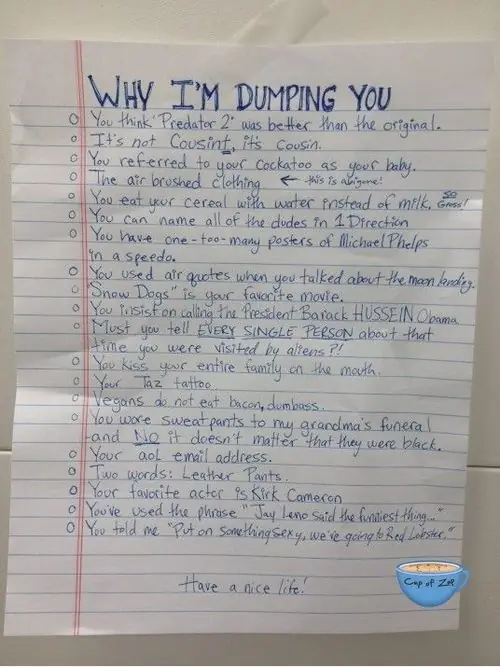 WHY I'M DUMPING YOU
You think "Predator 2" was better than the original.
It's not CousinT, it's cousin.
You referred to your cockatoo as your baby.
The air brushed clothing ← this is a big one!
You eat your cereal with water instead of milk. SO Gross!
You can name all of the dudes in 1 Direction
You have one-too-many posters of Michael Phelps
in a speedo.
You used air quotes when you talked about the moon landing.
"Snow Dogs" is your favorite movie.
You insist on calling the President Barack HUSSEIN Obama
Must you tell EVERY SINGLE PERSON about that
time you were visited by aliens?!
You kiss your entire family on the mouth.
Your Taz tattoo
Vegans do not eat bacon, dumbass.
You wore sweatpants to my grandma's funeral
-and NO it doesn't matter that they were black.
Your aol email address.
Two words: Leather Pants.
Your favorite actor is Kirk Cameron
You've used the phrase "Jay Leno said the funniest thing..."
You told me "Put on something sexy, we're going to Red Lobster."
Have a nice life!
Cup of Zup